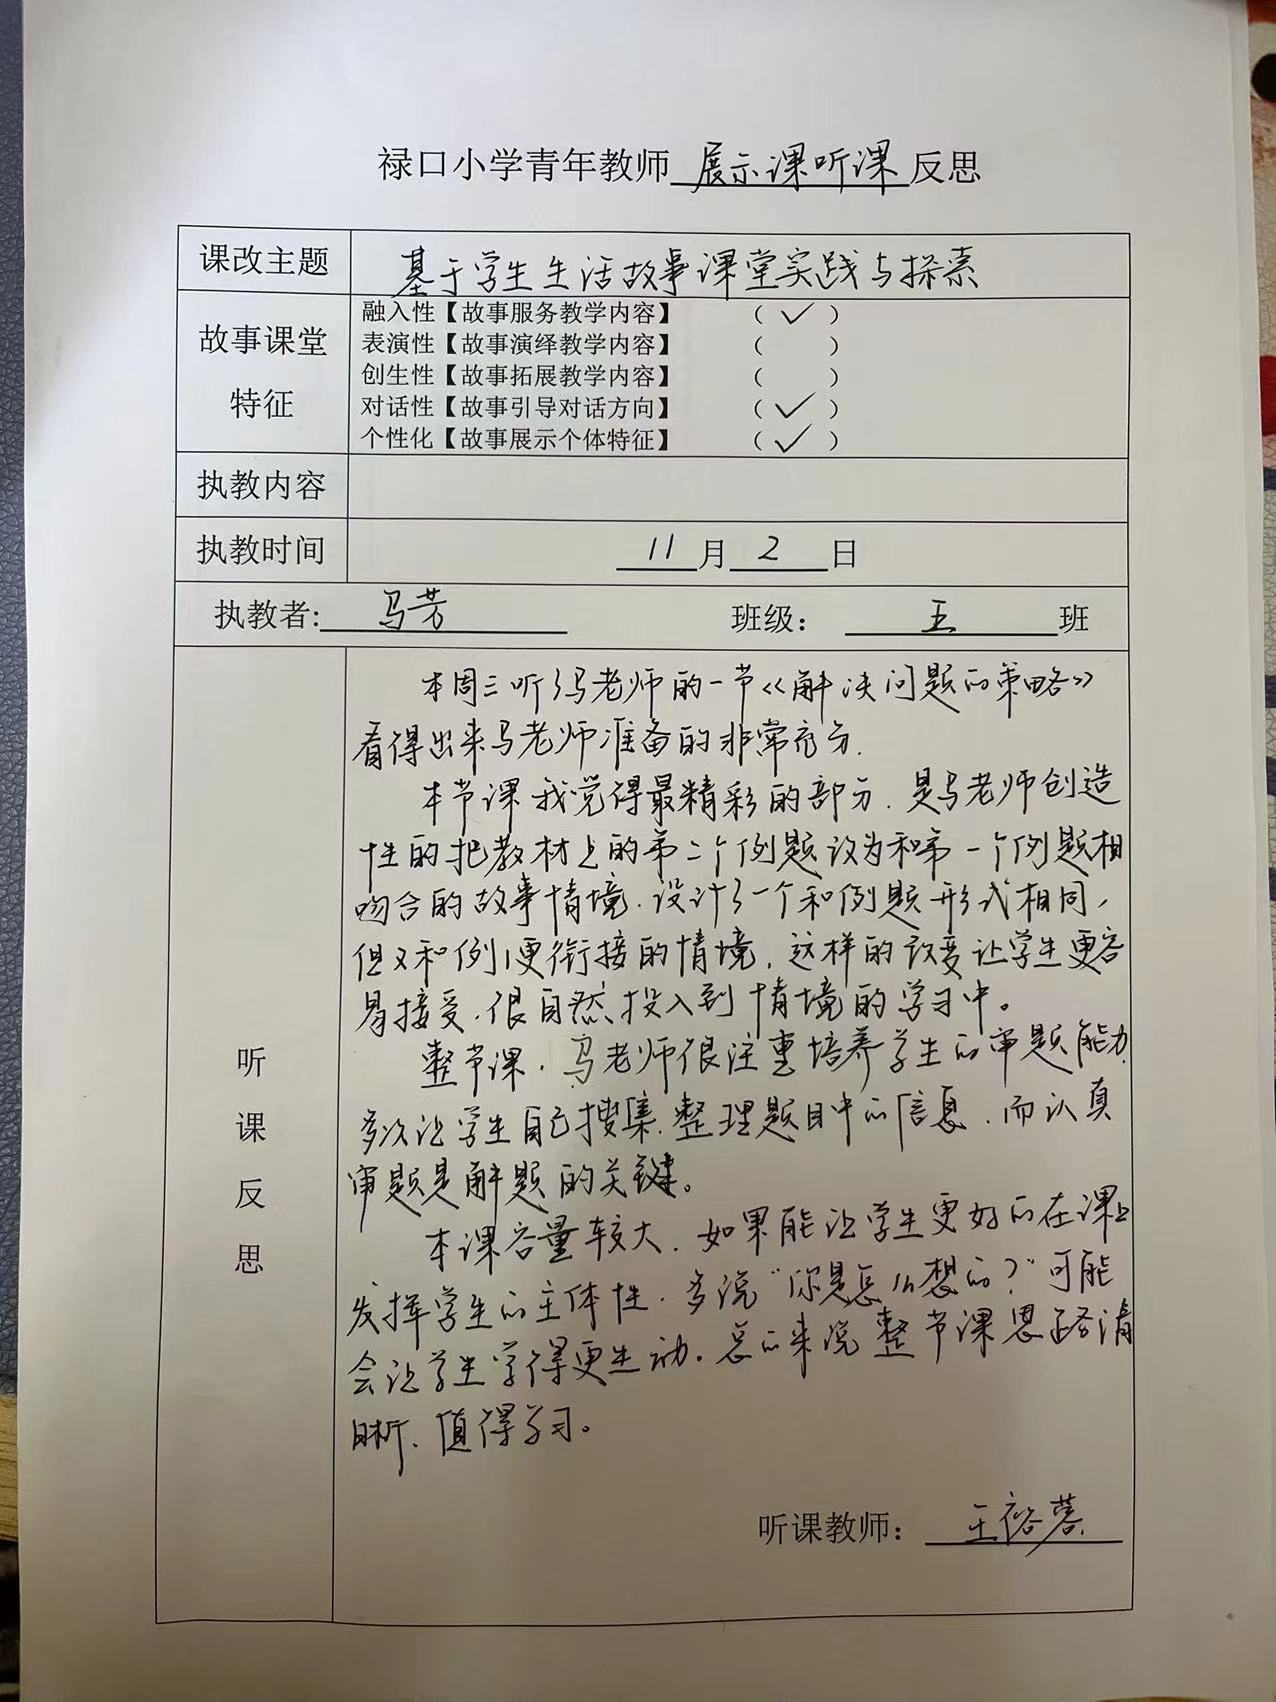 禄口小学青年教师 展示课听课 反思
课改主题 基于学生生活故事课堂实践与探索
故事课堂特征
融入性【故事服务教学内容】 （ ✓ ）
表演性【故事演绎教学内容】 （ ）
创生性【故事拓展教学内容】 （ ）
对话性【故事引导对话方向】 （ ✓ ）
个性化【故事展示个体特征】 （ ✓ ）
执教内容
执教时间 11 月 2 日
执教者: 马芳 班级： 五 班
听课反思
本周三听了马老师的一节《解决问题的策略》
看得出来马老师准备的非常充分.
本节课我觉得最精彩的部分.是马老师创造
性的把教材上的第二个例题改为和第一个例题相
吻合的故事情境.设计了一个和例题形式相同,
但又和例1更衔接的情境,这样的改变让学生更容
易接受.很自然投入到情境的学习中。
整节课.马老师很注重培养学生的审题能力.
多次让学生自己搜集.整理题目中的信息.而认真
审题是解题的关键。
本课容量较大.如果能让学生更好的在课上
发挥学生的主体性.多说“你是怎么想的？”可能
会让学生学得更生动。总的来说整节课思路清
晰.值得学习。
听课教师： 王裕蓉